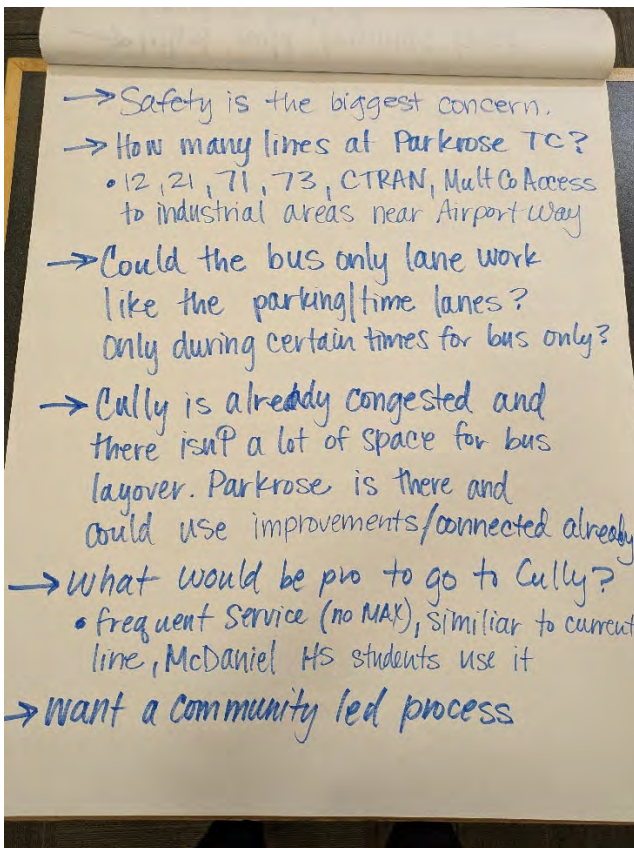 → Safety is the biggest concern.
→ How many lines at Parkrose TC?
• 12, 21, 71, 73, CTRAN, Mult Co Access
to industrial areas near Airport Way
→ Could the bus only lane work
like the parking/time lanes?
only during certain times for bus only?
→ Cully is already congested and
there isn't a lot of space for bus
layover. Parkrose is there and
could use improvements/connected already
→ What would be pro to go to Cully?
• frequent Service (no MAX), similiar to current
line, McDaniel HS students use it
→ Want a community led process